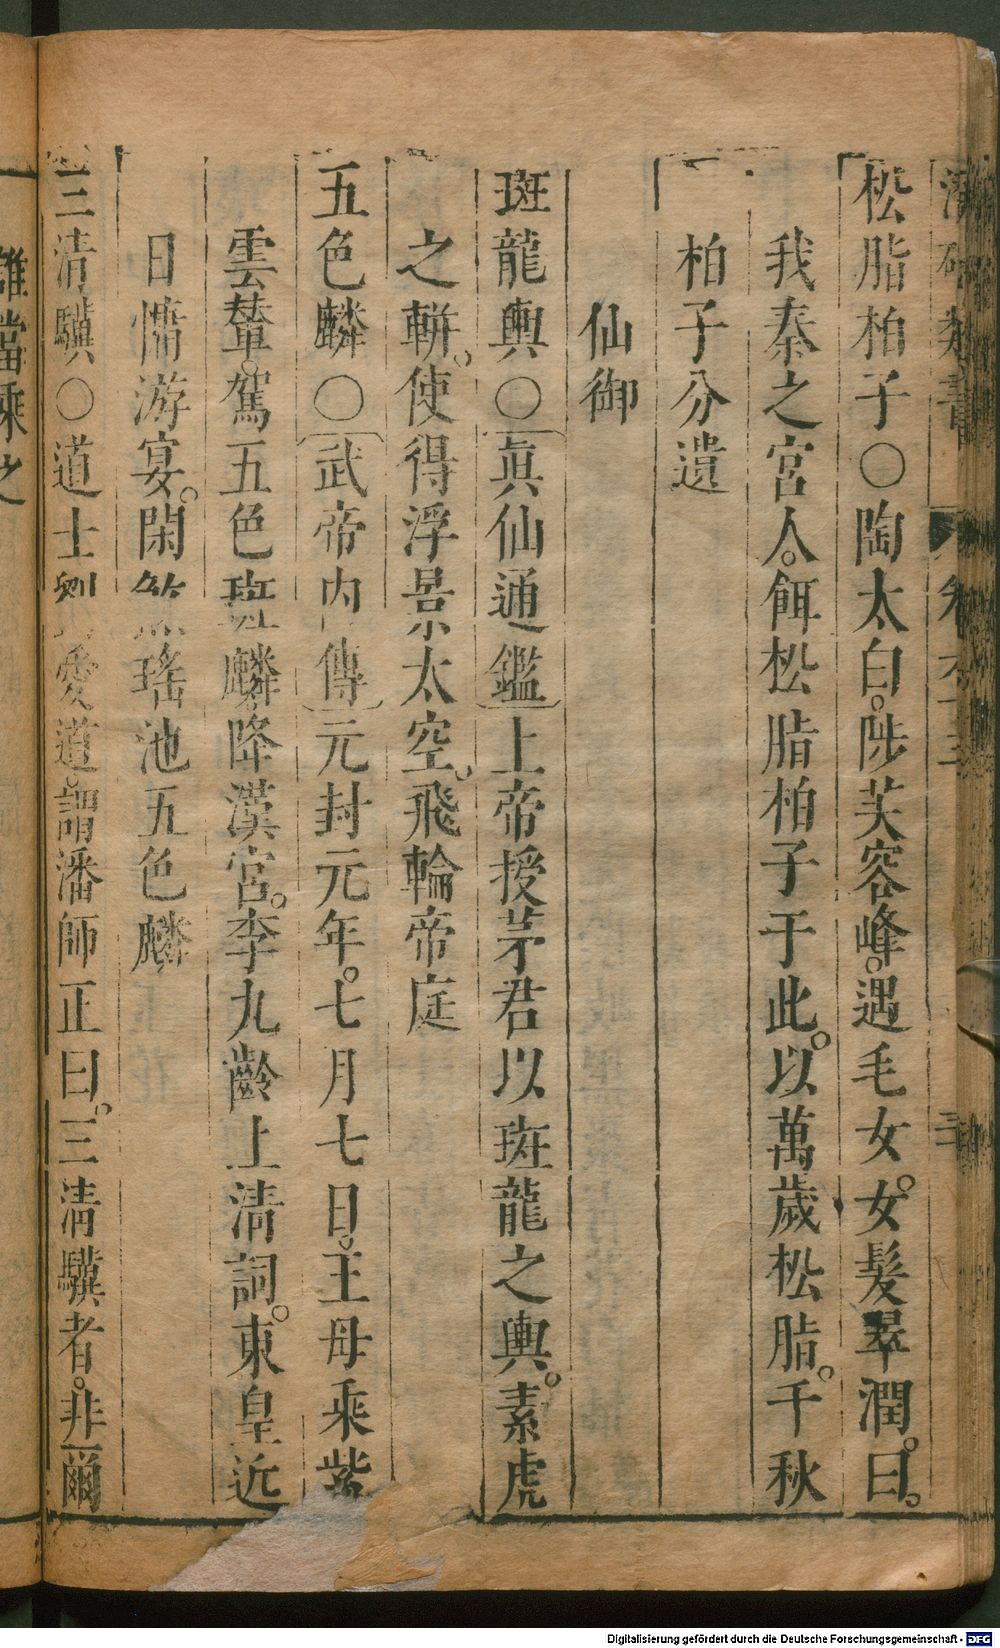 松脂柏子○陶太白陟芙容峰遇毛女女髮翠潤曰
我秦之宮人餌松脂柏子于此以萬歲松脂千秋
柏子分遺
仙御
斑龍輿○眞仙通鑑上帝授茅君以斑龍之輿素虎
之軿使得浮景太空飛輪帝庭
五色麟○武帝內傳元封元年七月七日王母乘紫
雲輦駕五色斑麟降漢宮李九齡上清詞東皇近
日慵游宴閑煞瑤池五色麟
三清驥○道士劉愛道謂潘師正曰三清驥者非爾
誰當乘之
Digitalisierung gefördert durch die Deutsche Forschungsgemeinschaft - DFG